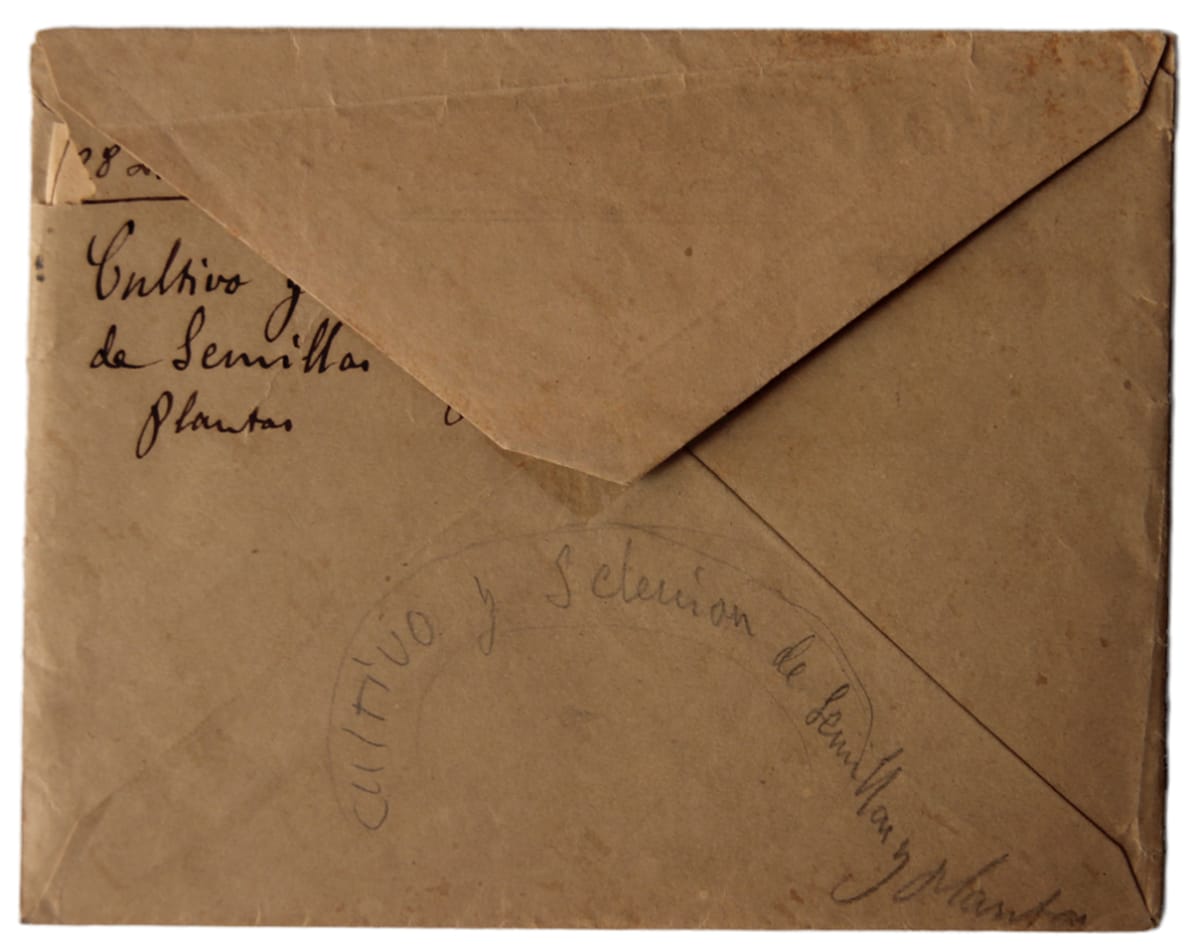 28 2
Cultivo y
de Semillas
Plantas
Cultivo y Seleccion de Semillas y plantas